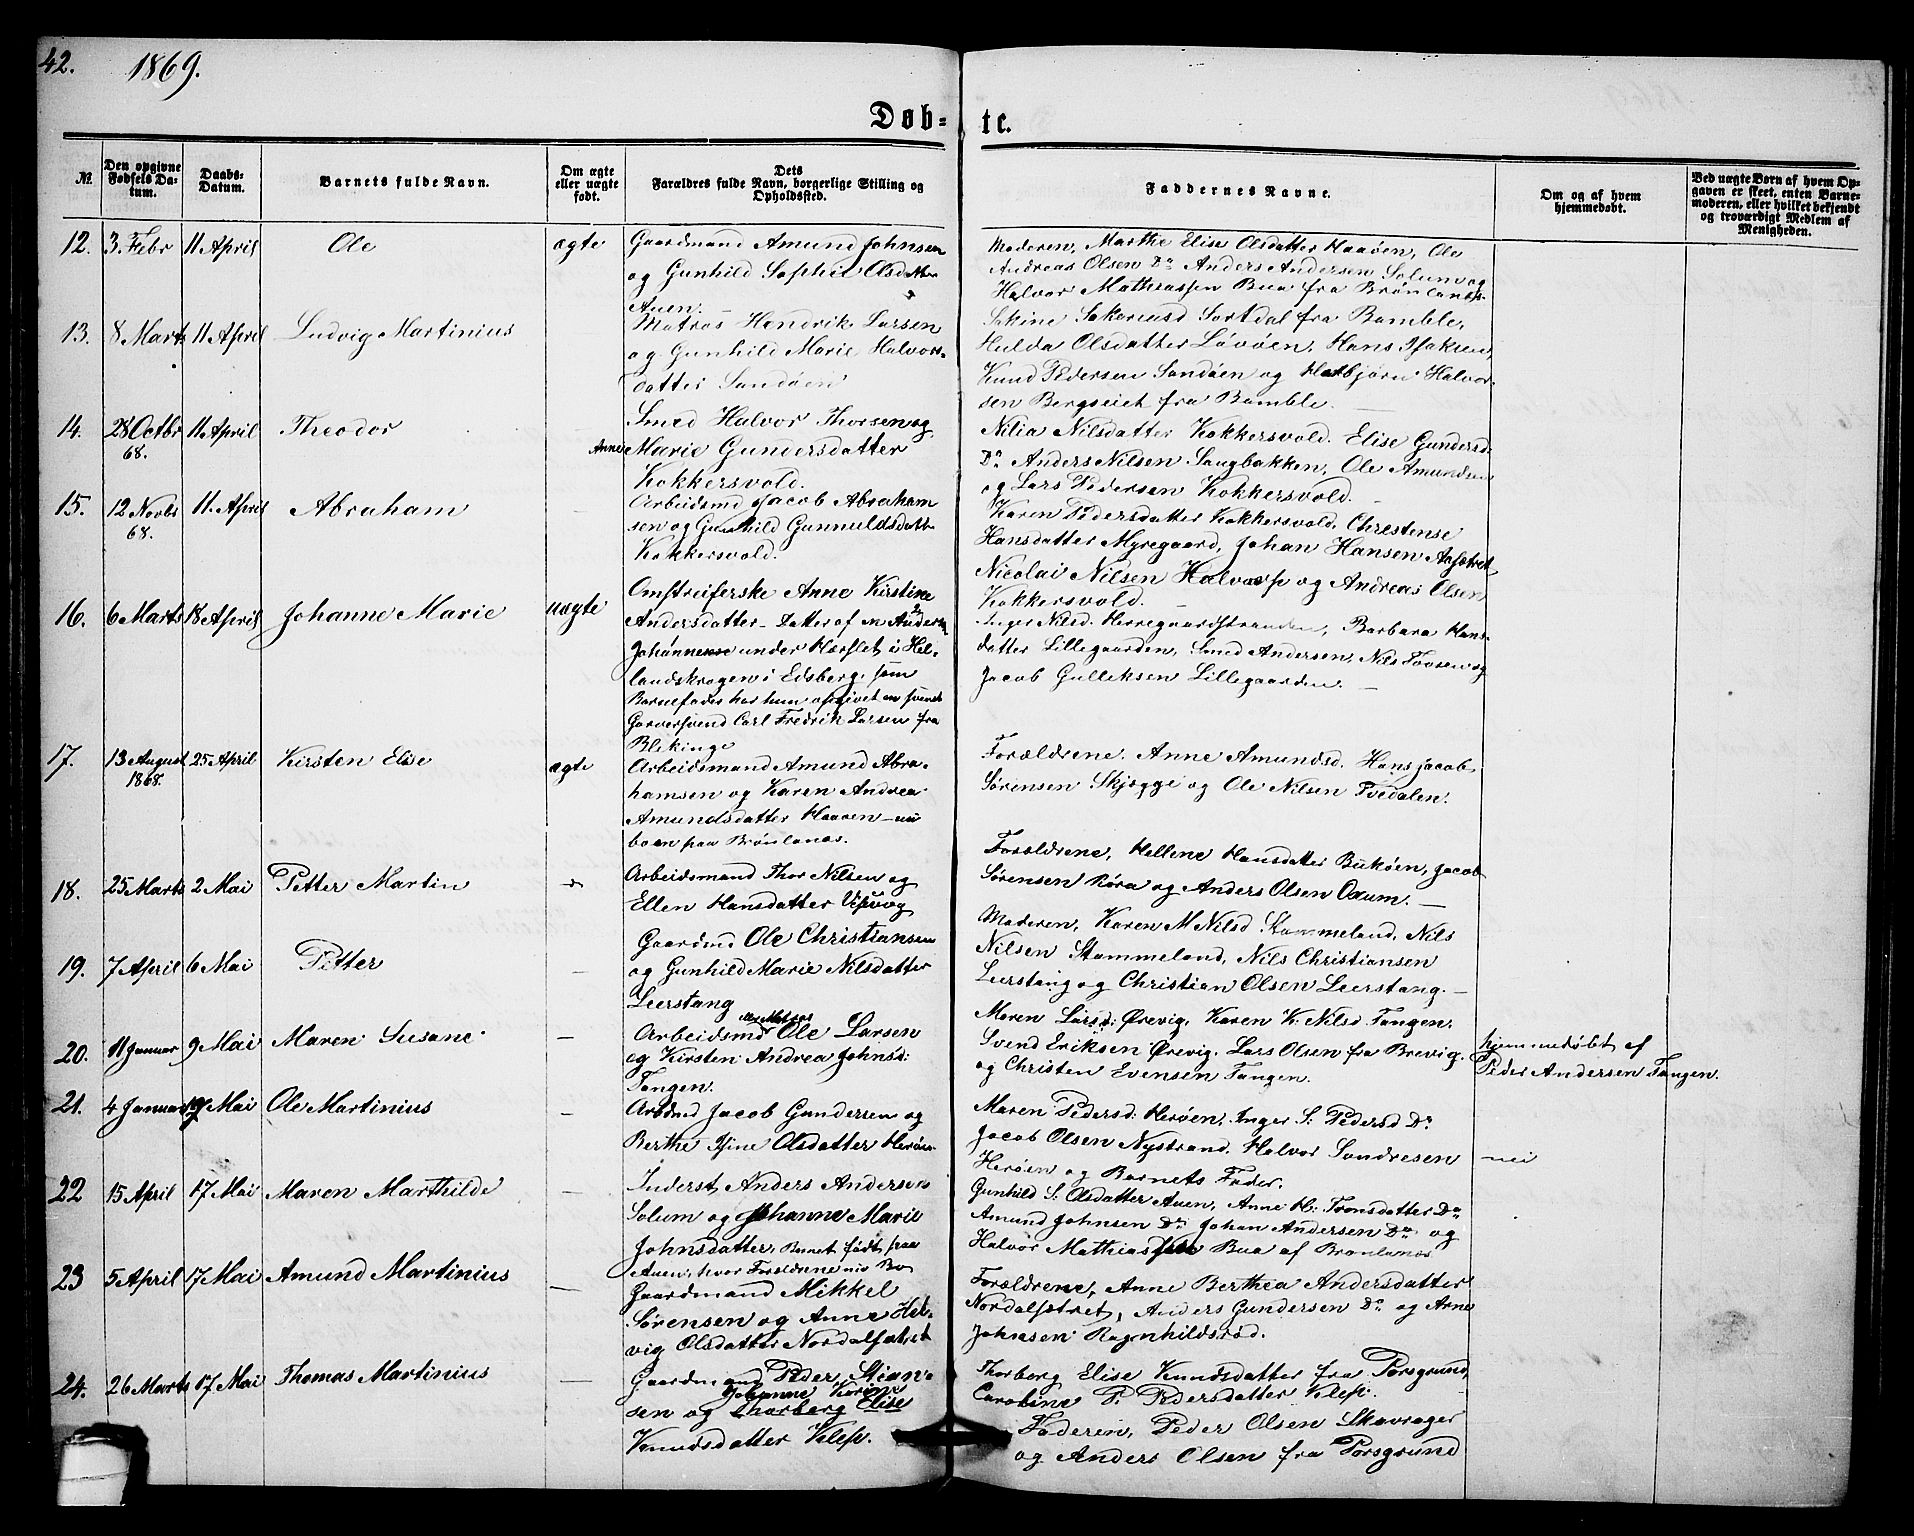 42.
1869.
Døb-
te.
No.
Den opgivne Fødsels Datum.
Daabs-Datum.
Barnets fulde Navn.
Om ægte eller uægte født.
Dets Forældres fulde Navn, borgerlige Stilling og Opholdssted.
Faddernes Navne.
Om og af hvem hjemmedøbt.
Ved uægte Børn af hvem Opgaven er skeet, enten Barnemoderen, eller hvilket bekjendt og troværdigt Medlem af Menigheden.
12. 3. Febr 11 April Ole ægte
Gaardmand Amund Johnsen
og Gunhild Sophie Olsdatter
Auen.
Moderen, Marthe Elise Olsdatter Haaøen, Ole
Andreas Olsen Do Anders Andersen Solum og
Halvor Mathiassen Bua fra Brønlanæs.
13. 8 Marts 11 April Ludvig Martinius
Matros Hendrik Larsen
og Gunhild Marie Halvors-
datter Sandøen
Sortdal fra Bamble,
Hulda Olsdatter Løvøen, Hans Isaksen,
Knud Pedersen Sandøen og Halbjørn Halvor-
sen Bergseiet fra Bamble.
14. 28 Octbr 68. 11 April Theodor
Smed Halvor Thorsen og
Anne Marie Gundersdatter
Kokkersvold.
Nilia Nilsdatter Kokkersvold. Elise Gundersd.
Do Anders Nilsen Saugbakken, Ole Amundsen
og Lars Pedersen Kokkersvold.
15. 12 Novbr 68. 11 April Abraham
Arbeidsmd Jacob Abraham
sen og Gunhild Gunnuldsdatt.
Kokkersvold.
Karen Pedersdatter Kokkersvold, Christense
Hansdatter Myregaard, Johan Hansen Aasætret
Nicolai Nilsen Halvarsp og Andreas Olsen
Kokkersvold.
16. 6 Marts 18 April Johanne Marie uægte
Omstreiferske Anne Kirstine
Andersdatter - Datter af m Anders
Johannesse under Hærslet i Hel-
landskrogen i Edsberg, som
Barnefader har hun opgivet en svensk
Garversvend Carl Fredrik Larsen fra
Blekinge
Inger Nilsd. Herregaardstranden, Barbara Hans-
datter Lillegaarden, Smed Andersen, Nils Tovsen og
Jacob Gulleksen Lillegaarden.
17. 13 August 1868. 25 April Kirsten Elise ægte
Arbeidsmand Amund Abra-
hamsen og Karen Andrea
Amundsdatter Haaøen - nu
boen paa Brønlanæs.
Forældrene, Anne Amundsd. Hans Jacob
Sørensen Skjøgge og Ole Nilsen Tvedalen.
18. 25 Marts 2 Mai Petter Martin
Arbeidsmand Thor Nilsen og
Ellen Hansdatter Vesvog
Forældrene, Hellene Hansdatter Bukøen, Jacob
Sørensen Røra og Anders Olsen Oxum.
19. 7 April 6 Mai Petter —
Gaardmd Ole Christiansen
og Gunhild Marie Nilsdatter
Leerstang
Moderen, Karen M Nilsd Stammeland, Nils
Nilsen Stammeland, Nils Christiansen
Leerstang og Christian Olsen Leerstang.
20. 11 Januar 9 Mai Maren Susane —
Arbeidsmd Ole Larsen
og Kirsten Andrea Johnsd:
Tangen.
Maren Larsd: Ørevig, Karen K: Nilsd Tangen.
Svend Eriksen Ørevig, Lars Olsen fra Brevig.
og Christen Evensen Tangen.
hjemmedøbt af
Peder Andersen Tangen.
21. 4 Januar Mai Ole Martinius —
Arbmd Jacob Gundersen og
Berthe Isine Olsdatter Herøen
Maren Pedersd: Herøen, Inger S: Pedersd Do
Jacob Olsen Nystrand, Halvor Sondresen
Herøen og Barnets Fader.
nei
22 15 April 17 Mai Maren Marthilde —
Inderst Anders Andersen
Solum og Johanne Marie
Johnsdatter, Barnet født paa
Auen, hvor Forældrene nu Bo
Gunhild S: Olsdatter Auen, Anne H: Tronsdatter Do
Amund Johnsen Do Johan Andersen Do og
Halvor Mathiassen Bua af Brønlanæs
23 5 April 17 Mai Amund Martinius —
Gaardmand Mikkel
Sørensen og Anne Hel-
vig Olsdatter Nordalsætret
Forældrene, Anne Berthea Andersdatter
Nordalsætret, Anders Gundersen Do og Arne
Johnsen Ragnhildsrød.
24. 26 Marts 17 Mai Thomas Martinius —
Gaardmand Peder Stian-
Johanne Karine
sen og Thorberg Elise
Knudsdatter Klep.
Thorborg Elise Knudsdatter fra Porsgrund,
Caroline P. Pedersdatter Klep.
Faderen, Peder Olsen Skavrager
og Anders Olsen fra Porsgrund